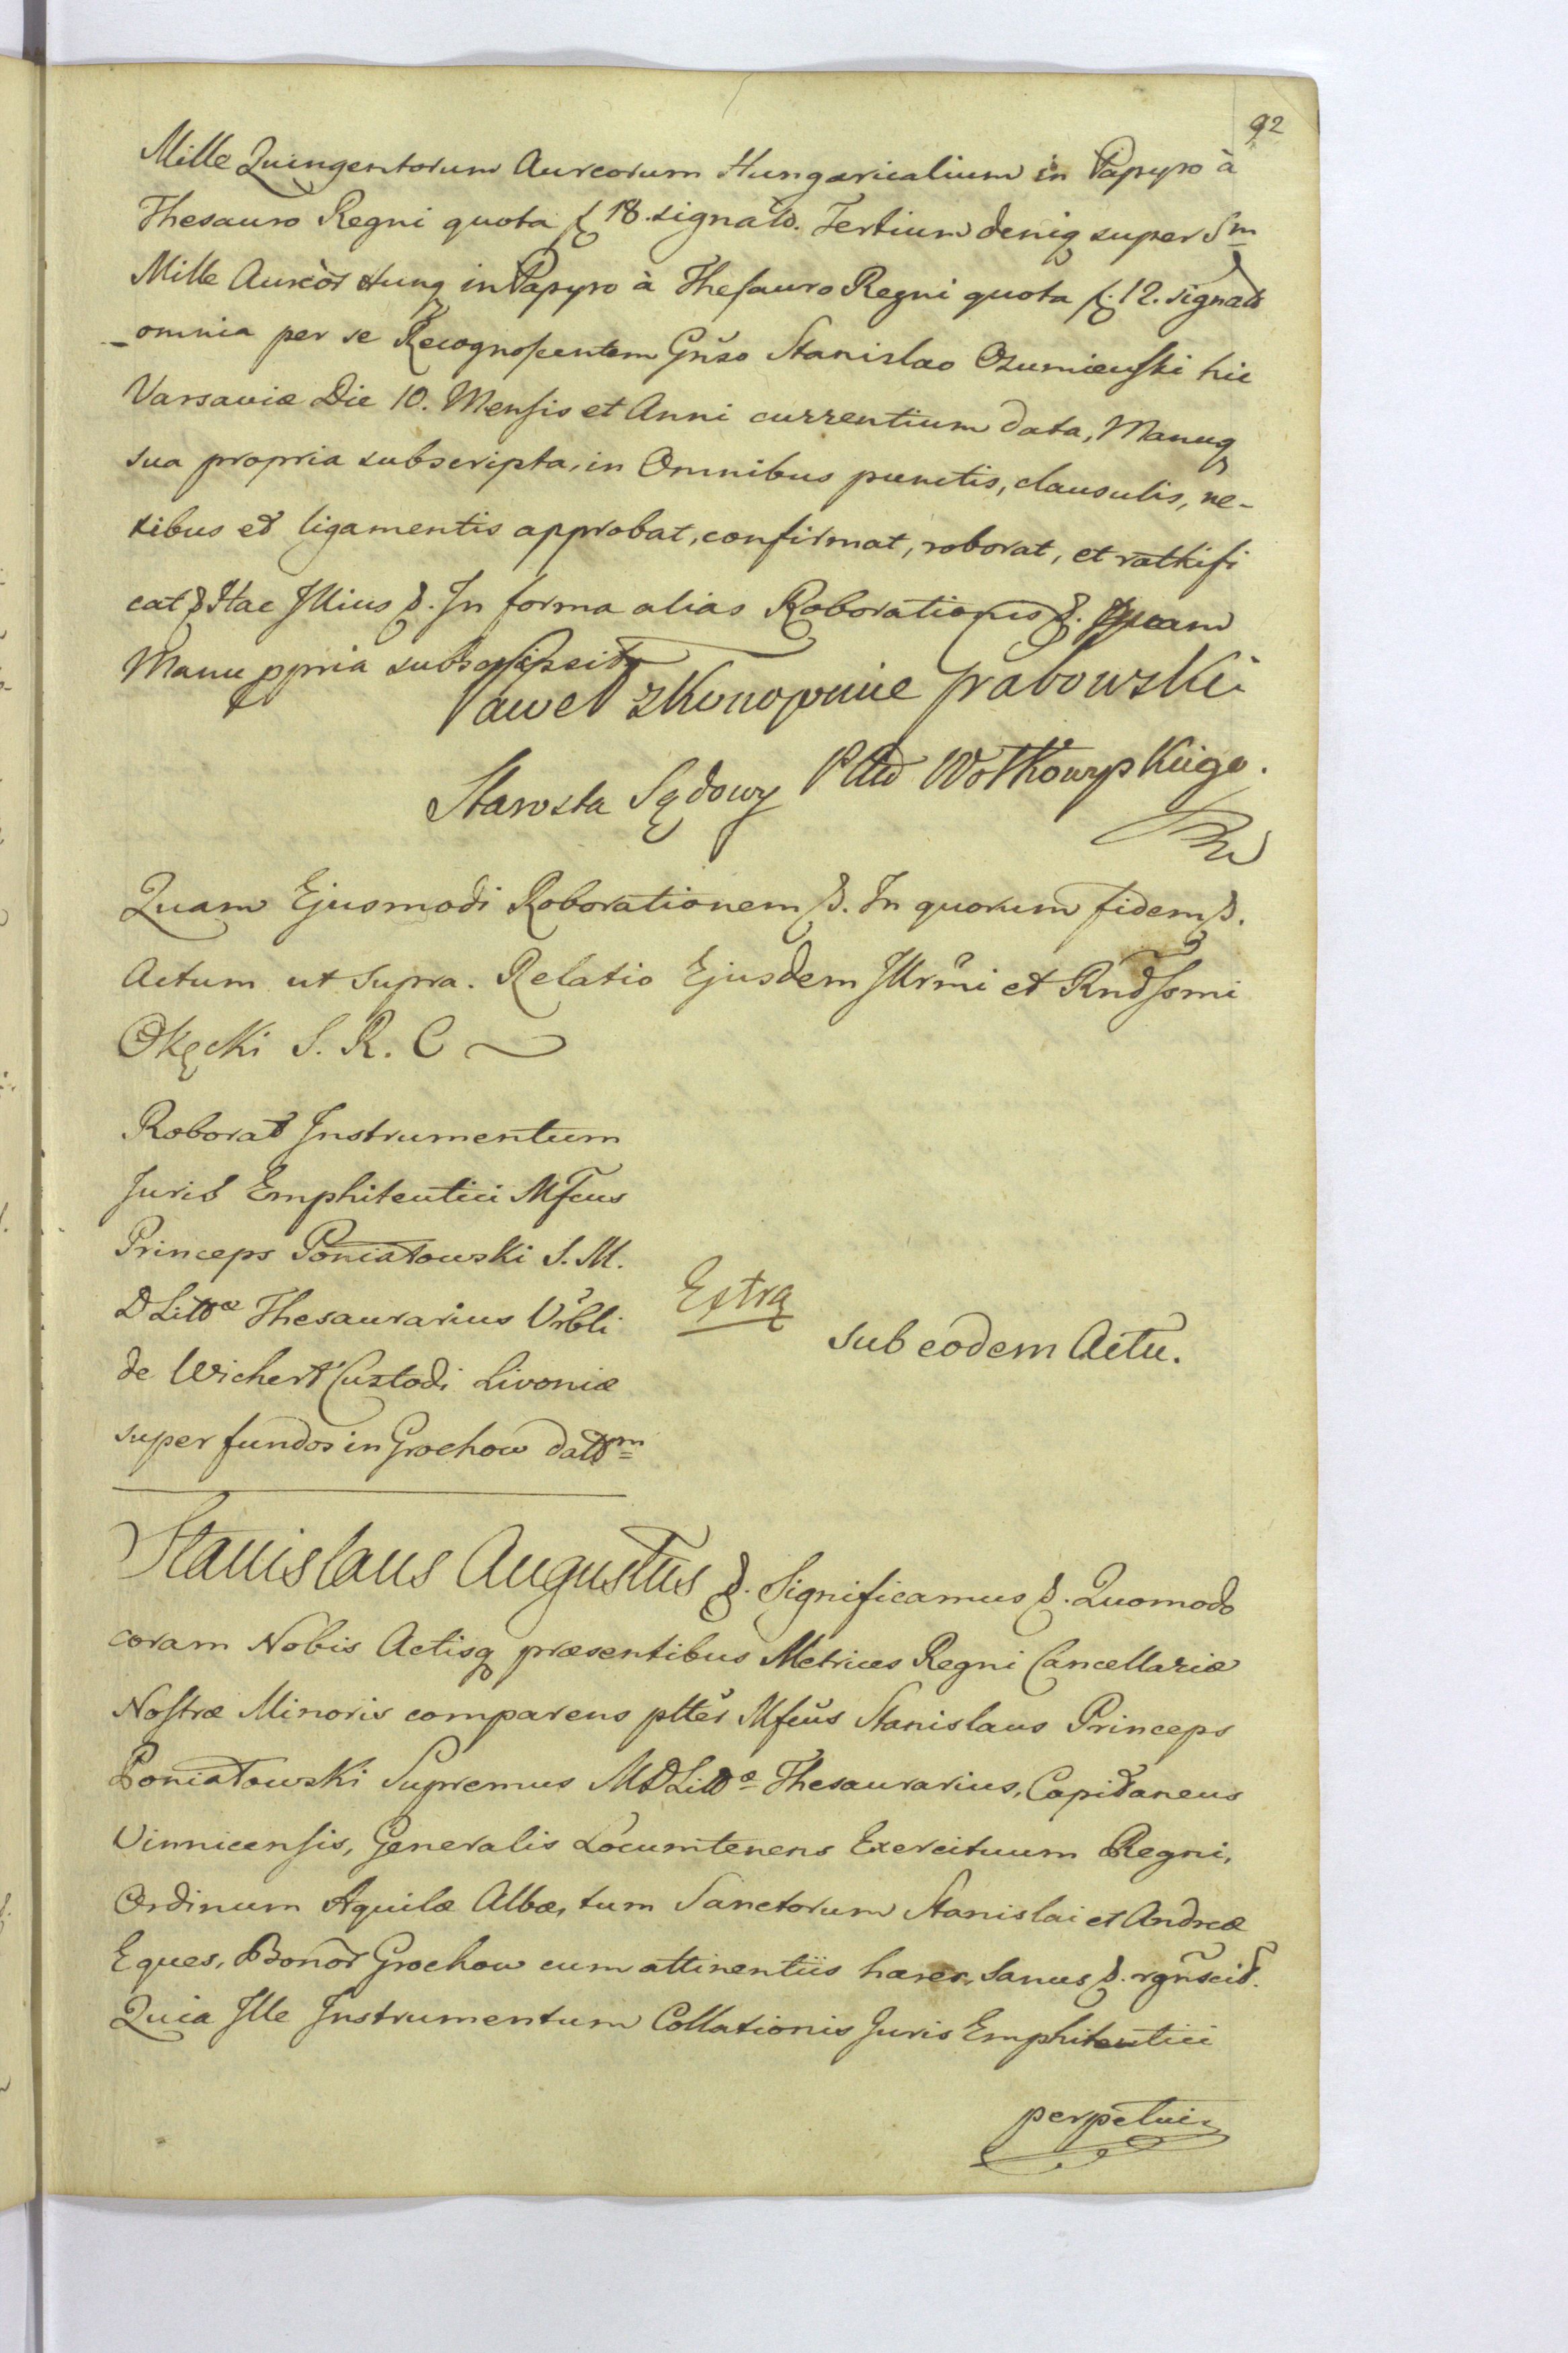 92
Mille Quingentorum Aureorum Hungaricalium in Papyro à
Thesauro Regni quota f 18. signato. Tertium deniq super Sm
Mille Aureor Hung in Papyro à Thesauro Regni quota f. 12. signato
omnia per se Recognoscentem Gnso Stanislao Ozumienski hic
Varsaviæ Die 10. Mensis et Anni currentium data, Manuq
sua propria subscripta, in Omnibus punctis, clausulis, ne-
xibus et ligamentis approbat, confirmat, roborat, et rathifi
cat & Hac Illius &. In forma alias Roborationis &. Quam
Manu ppria subscripsit
Paweł z Konopnice Grabowski
Starosta Sądowy Pttu Wołkowyskiego.
Quam Ejusmodi Roborationem &. In quorum fidem &.
Actum ut supra. Relatio Ejusdem Illrmi et Rndssmi
Okęcki S. R. C
Roborat Instrumentum
Juris Emphiteutici Mfcus
Princeps Poniatowski S. M.
D Litt​æ Thesaurarius Urbli
de Wichert Custodi Livoniæ
super fundos in Grochow dattm
Extra
sub eodem Actu.
Stanislaus Augustus &. Significamus &. Quomodo
coram Nobis Actisq præsentibus Metrices Regni Cancellariæ
Nostræ Minoris comparens ptter Mfcus Stanislaus Princeps
Poniatowski Supremus M D Littæ Thesaurarius, Capitaneus
Vinnicensis, Generalis Locumtenens Exercituum Regni,
Ordinum Aquilæ Albæ, tum Sanctorum Stanislai et Andreæ
Eques, Bonor Grochow cum attinentiis hæres, sanus &. rgnscit.
Quia Ille Instrumentum Collationis Juris Emphiteutici
perpetui